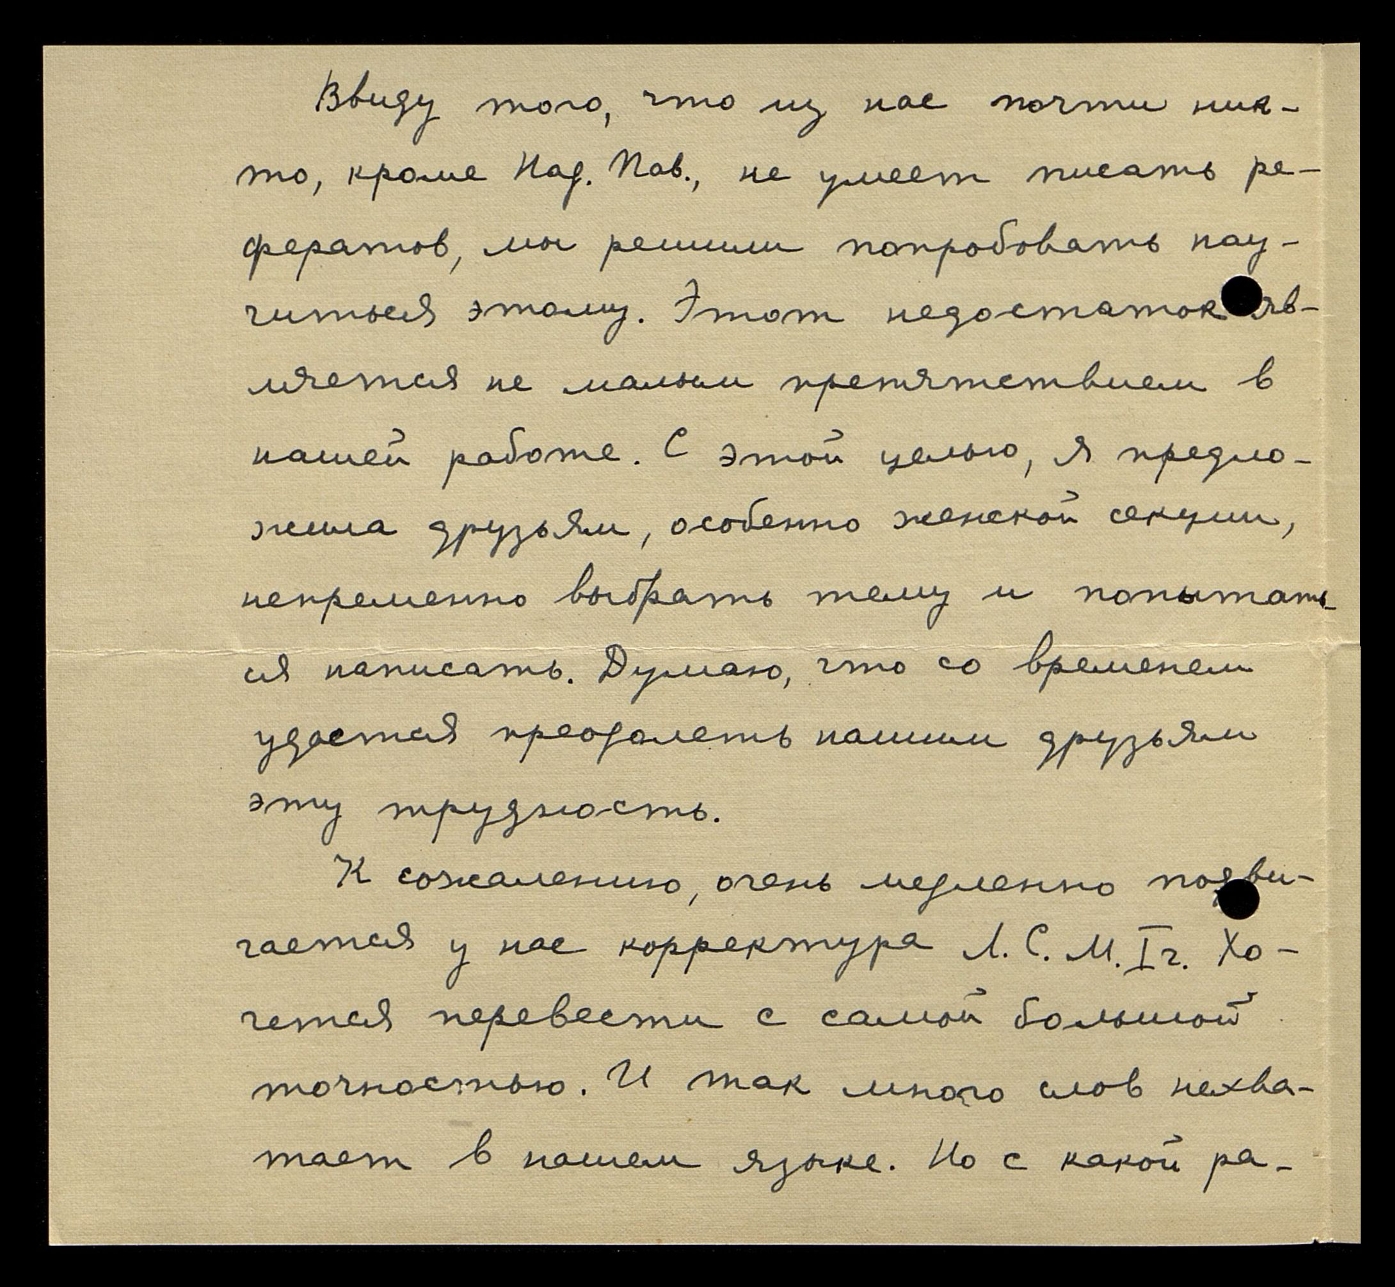 Ввиду того, что из нас почти ник-
то, кроме Над. Пав., не умеет писать ре-
фератов, мы решили попробовать нау-
читься этому. Этот недостаток яв-
ляется не малым препятствием в
нашей работе. С этой целью, я предло-
жила друзьям, особенно женской секции,
непременно выбрать тему и попытать-
ся написать. Думаю, что со временем
удастся преодолеть нашим друзьям
эту трудность.
К сожалению, очень медленно подви-
гается у нас корректура Л.С.М. I ч. Хо-
чется перевести с самой большой
точностью. И так много слов нехва-
тает в нашем языке. Но с какой ра-